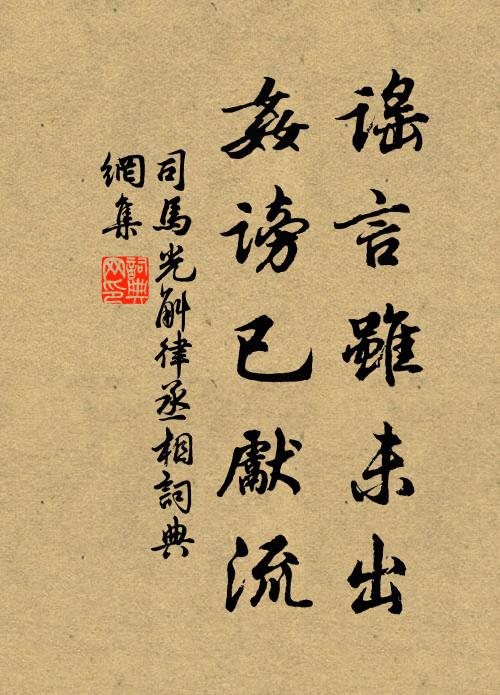 謠言雖未出
姦謗已獻流
司馬光斛律丞相詞典
網集
詞典
网印